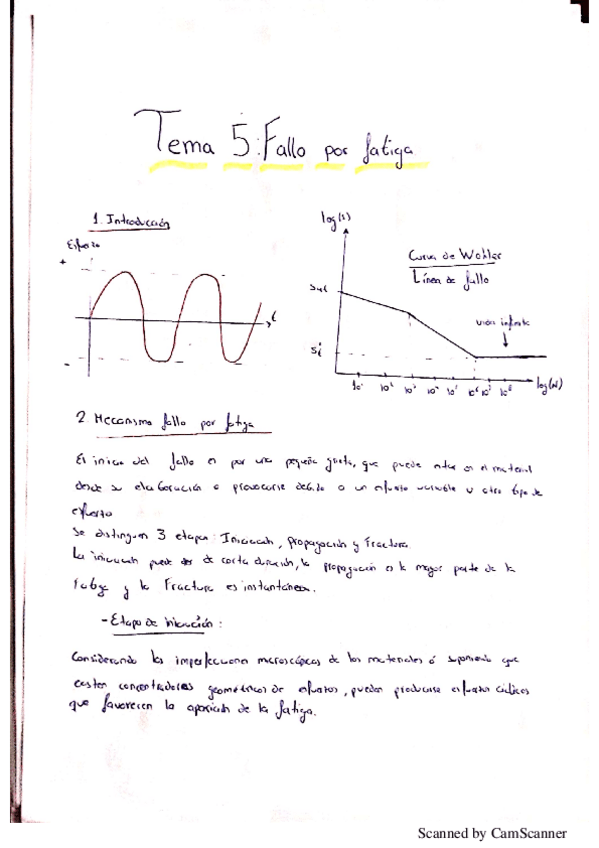 Tema 5: Fallo por fatiga
1. Introducción
Esfuerzo
+
t
-
log(S)
Curva de Wohler
Línea de fallo
Sut
vida infinita
Si
log(N)
2. Mecanismo fallo por fatiga
El inicio del fallo es por una pequeña grieta, que puede estar en el material
desde su elaboración o provocarse debido a un esfuerzo variable u otro tipo de
esfuerzo
Se distinguen 3 etapas: Iniciación, propagación y Fractura.
La iniciación puede ser de corta duración, la propagación es la mayor parte de la
fatiga y la Fractura es instantánea.
- Etapa de iniciación:
Considerando las imperfecciones microscópicas de los materiales ó suponiendo que
existen concentradores geométricos de esfuerzos, pueden producirse esfuerzos cíclicos
que favorecen la aparición de la fatiga.
Scanned by CamScanner